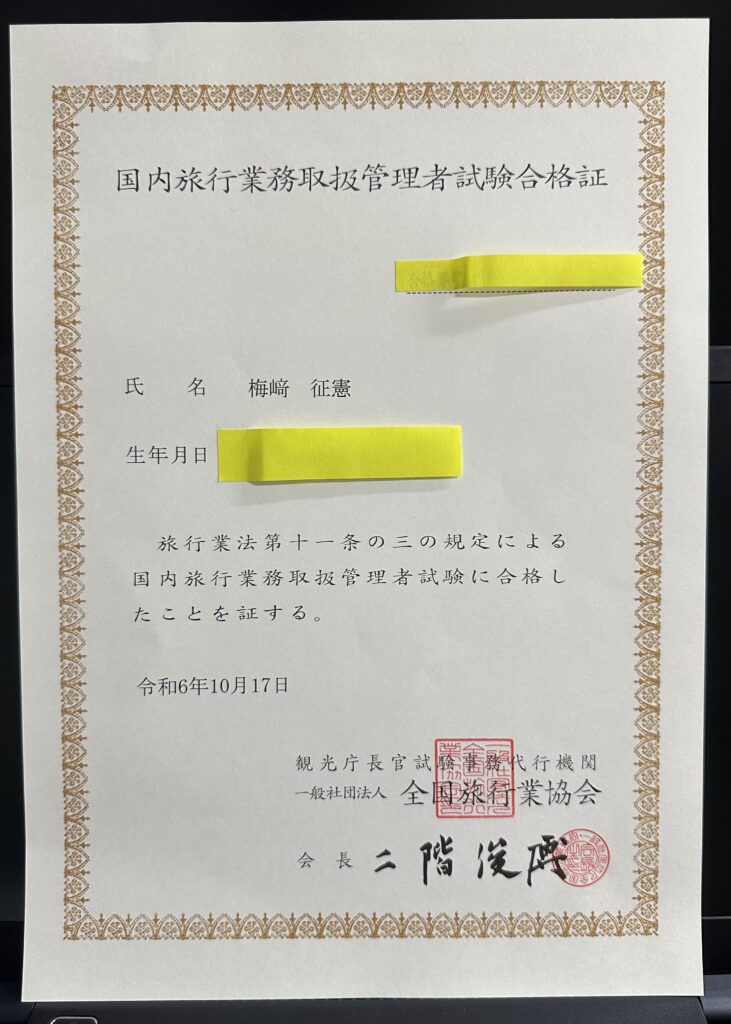 国内旅行業務取扱管理者試験合格証
氏　名　梅﨑　征憲
生年月日
旅行業法第十一条の三の規定による
国内旅行業務取扱管理者試験に合格し
たことを証する。
令和6年10月17日
観光庁長官試験事務代行機関
一般社団法人 全国旅行業協会
会長 二階俊博